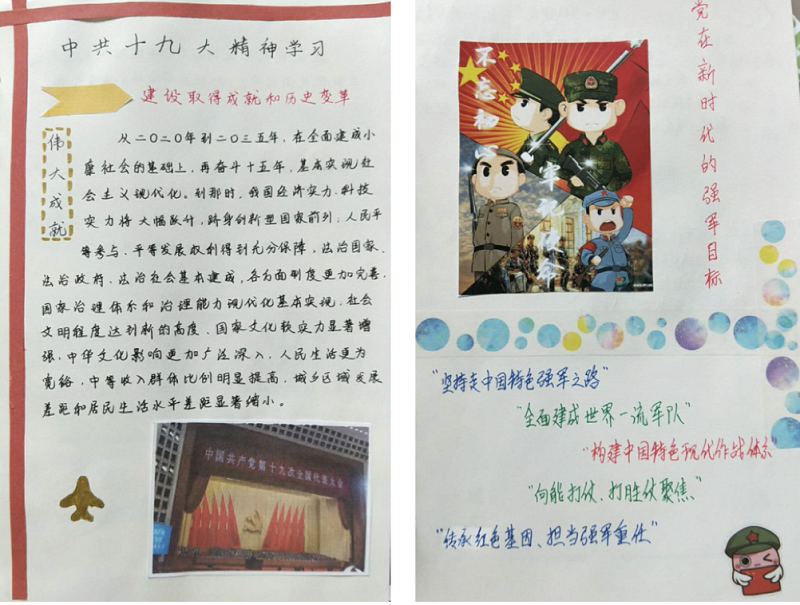 中共十九大精神学习
建设取得成就和历史变革
伟大成就
从二〇二〇年到二〇三五年，在全面建成小
康社会的基础上，再奋斗十五年，基本实现社
会主义现代化。到那时，我国经济实力、科技
实力将大幅跃升，跻身创新型国家前列；人民平
等参与、平等发展权利得到充分保障，法治国家、
法治政府、法治社会基本建成，各方面制度更加完善，
国家治理体系和治理能力现代化基本实现；社会
文明程度达到新的高度、国家文化软实力显著增
强，中华文化影响更加广泛深入，人民生活更为
宽裕，中等收入群体比例明显提高，城乡区域发展
差距和居民生活水平差距显著缩小。
中国共产党第十九次全国代表大会
党在新时代的强军目标
不忘初心
"坚持走中国特色强军之路"
"全面建成世界一流军队"
"构建中国特色现代作战体系"
"向能打仗、打胜仗聚焦"
"传承红色基因、担当强军重任"